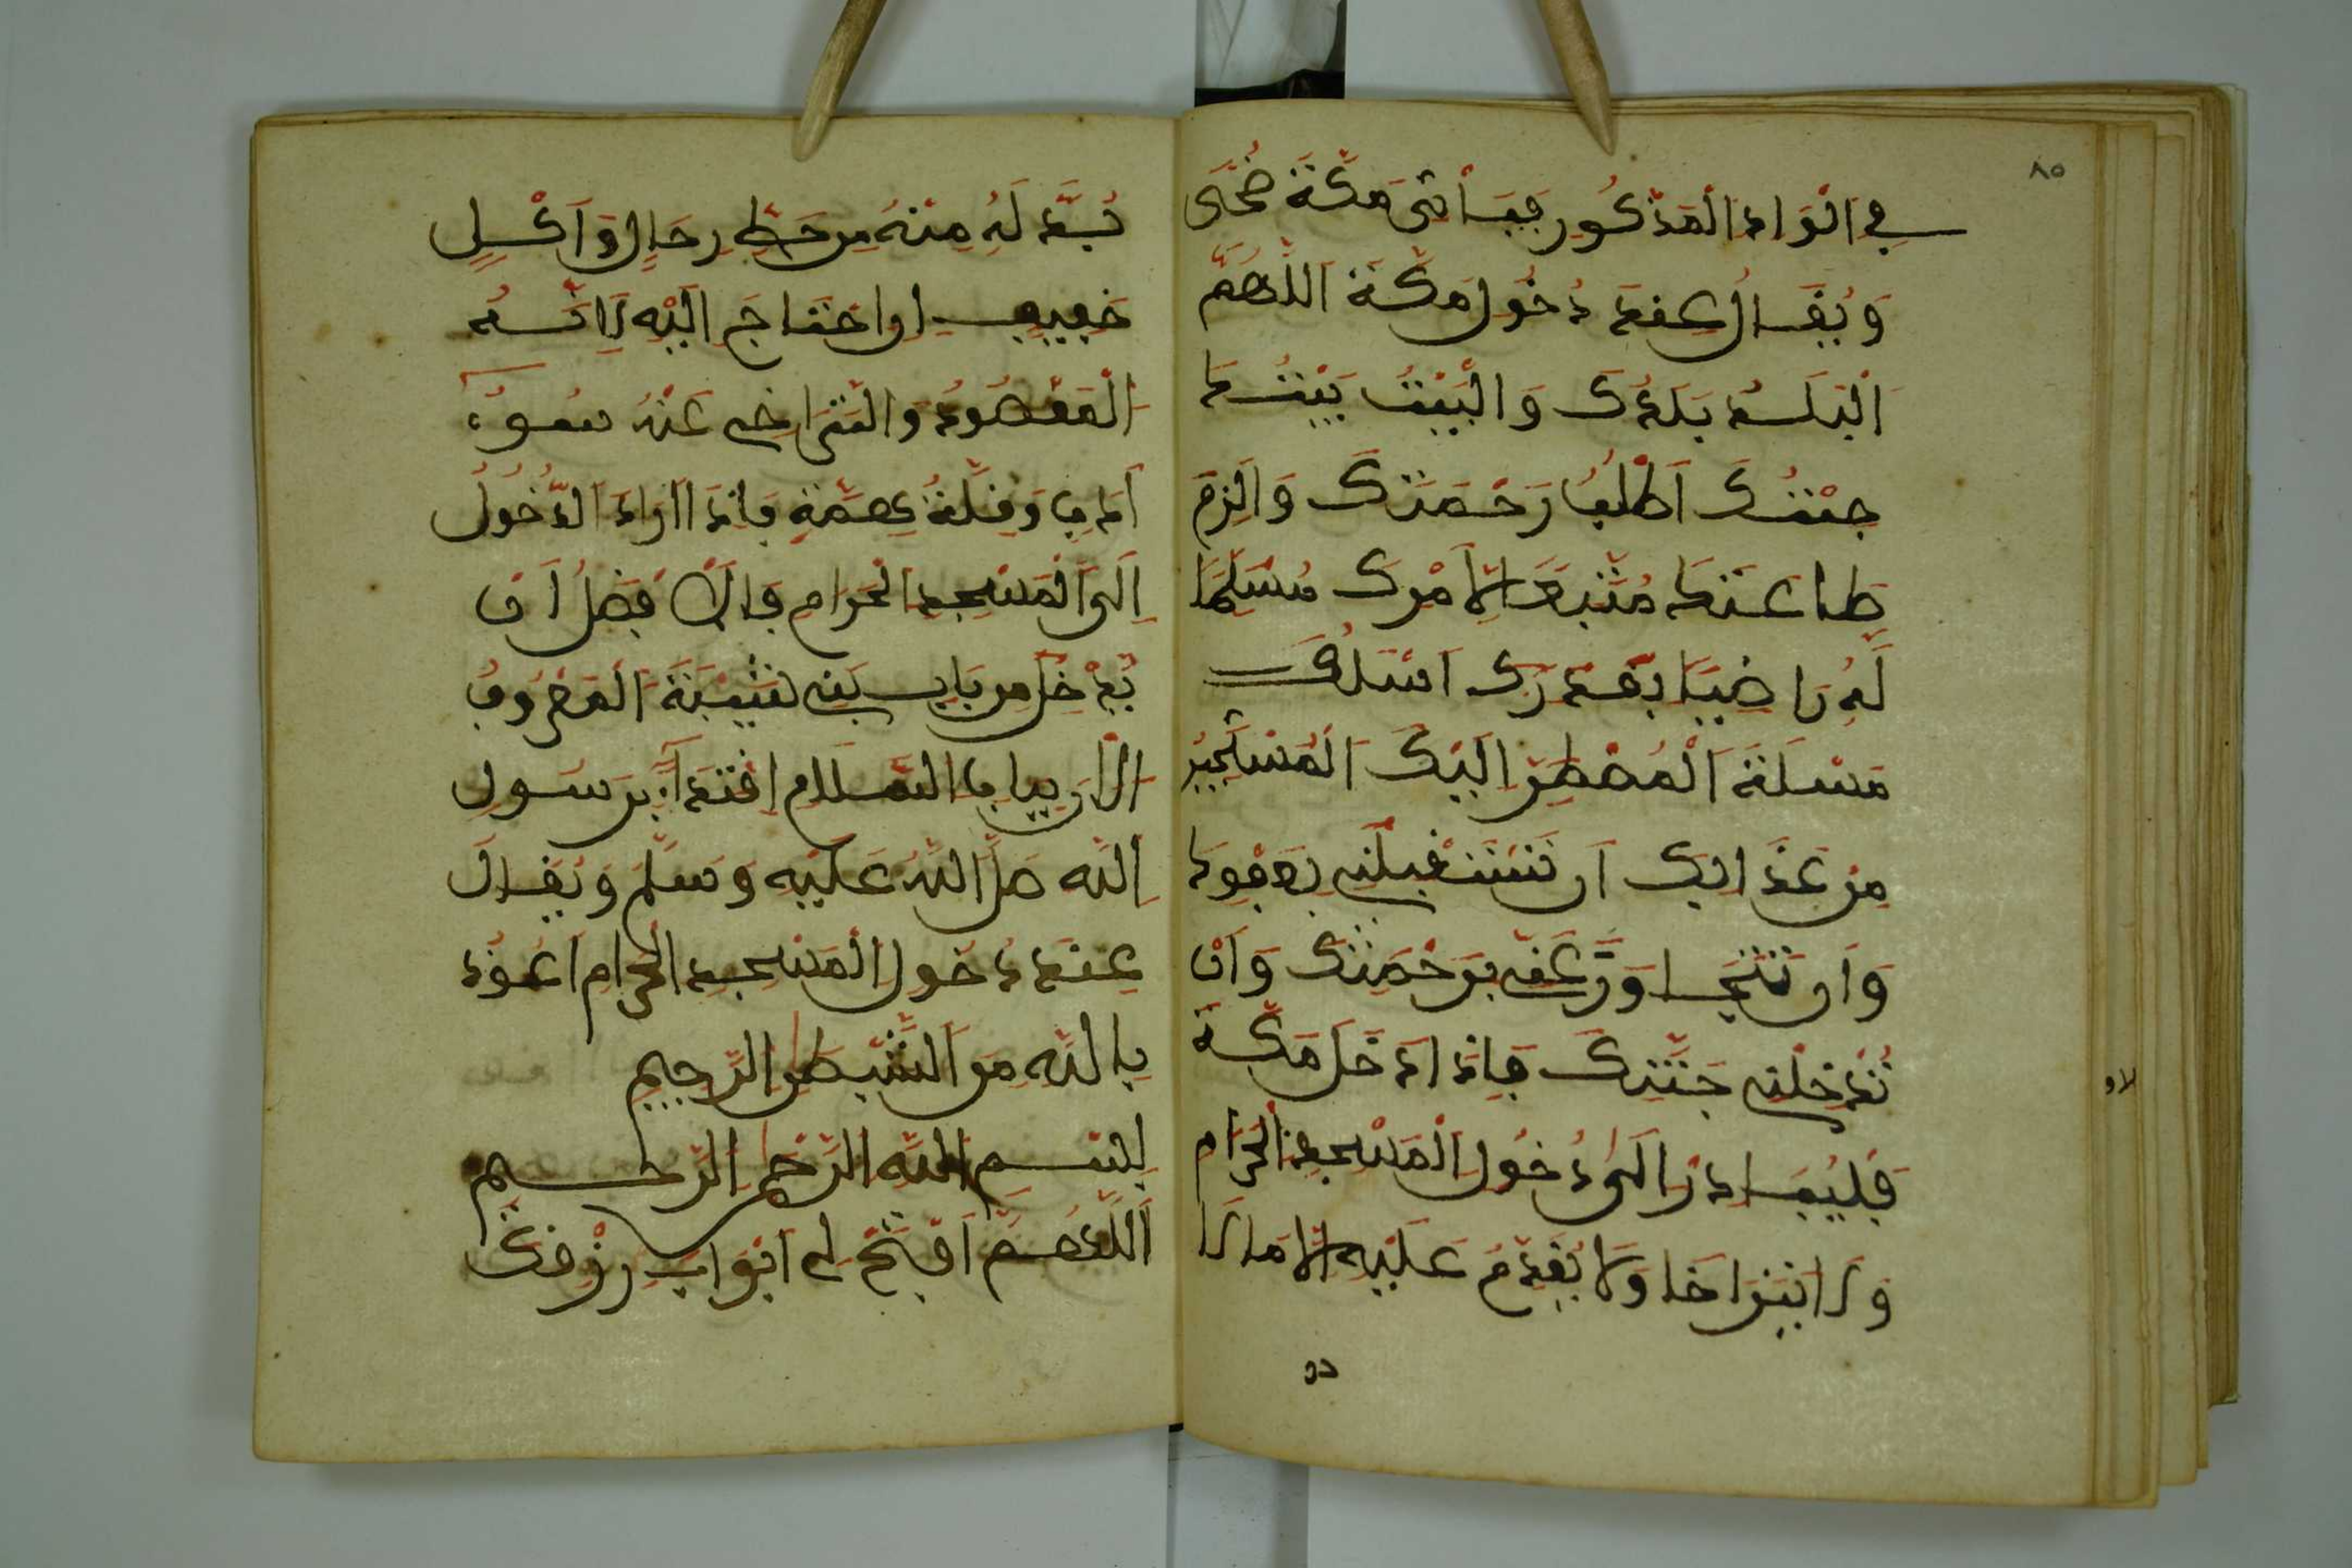 ٨٥
في الواد المذكور فيأتى مكة ضحى
ويقال عند دخول مكة اللهم
البلد بلدك والبيت بيتك
جئتك اطلب رحمتك والزم
طاعتك متبعا لأمرك مسلما
له راضيا بقدرك اسئلك
مسئلة المضطر اليك المستجير
من عذابك ان تستقبلني بعفوك
وان تتجاوز عني برحمتك وان
تدخلني جنتك فاذا دخل مكة
فليبادر الى دخول المسجد الحرام
ولا يتراخا ولا يقدم عليه الا ما لا
بد له منه من حط رحال واكل
خفيف او احتاج اليه لانه
المقصود والتراخي عنه سوء
ادب وقلة همة فاذا اراد الدخول
الى المسجد الحرام فالافضل ان
يدخل من باب بني شيبة المعروف
الآن بباب السلام اقتداء برسول
الله صلى الله عليه وسلم ويقال
عند دخول المسجد الحرام اعوذ
بالله من الشيطن الرجيم
بسم الله الرحمن الرحيم
اللهم افتح لي ابواب رزقك